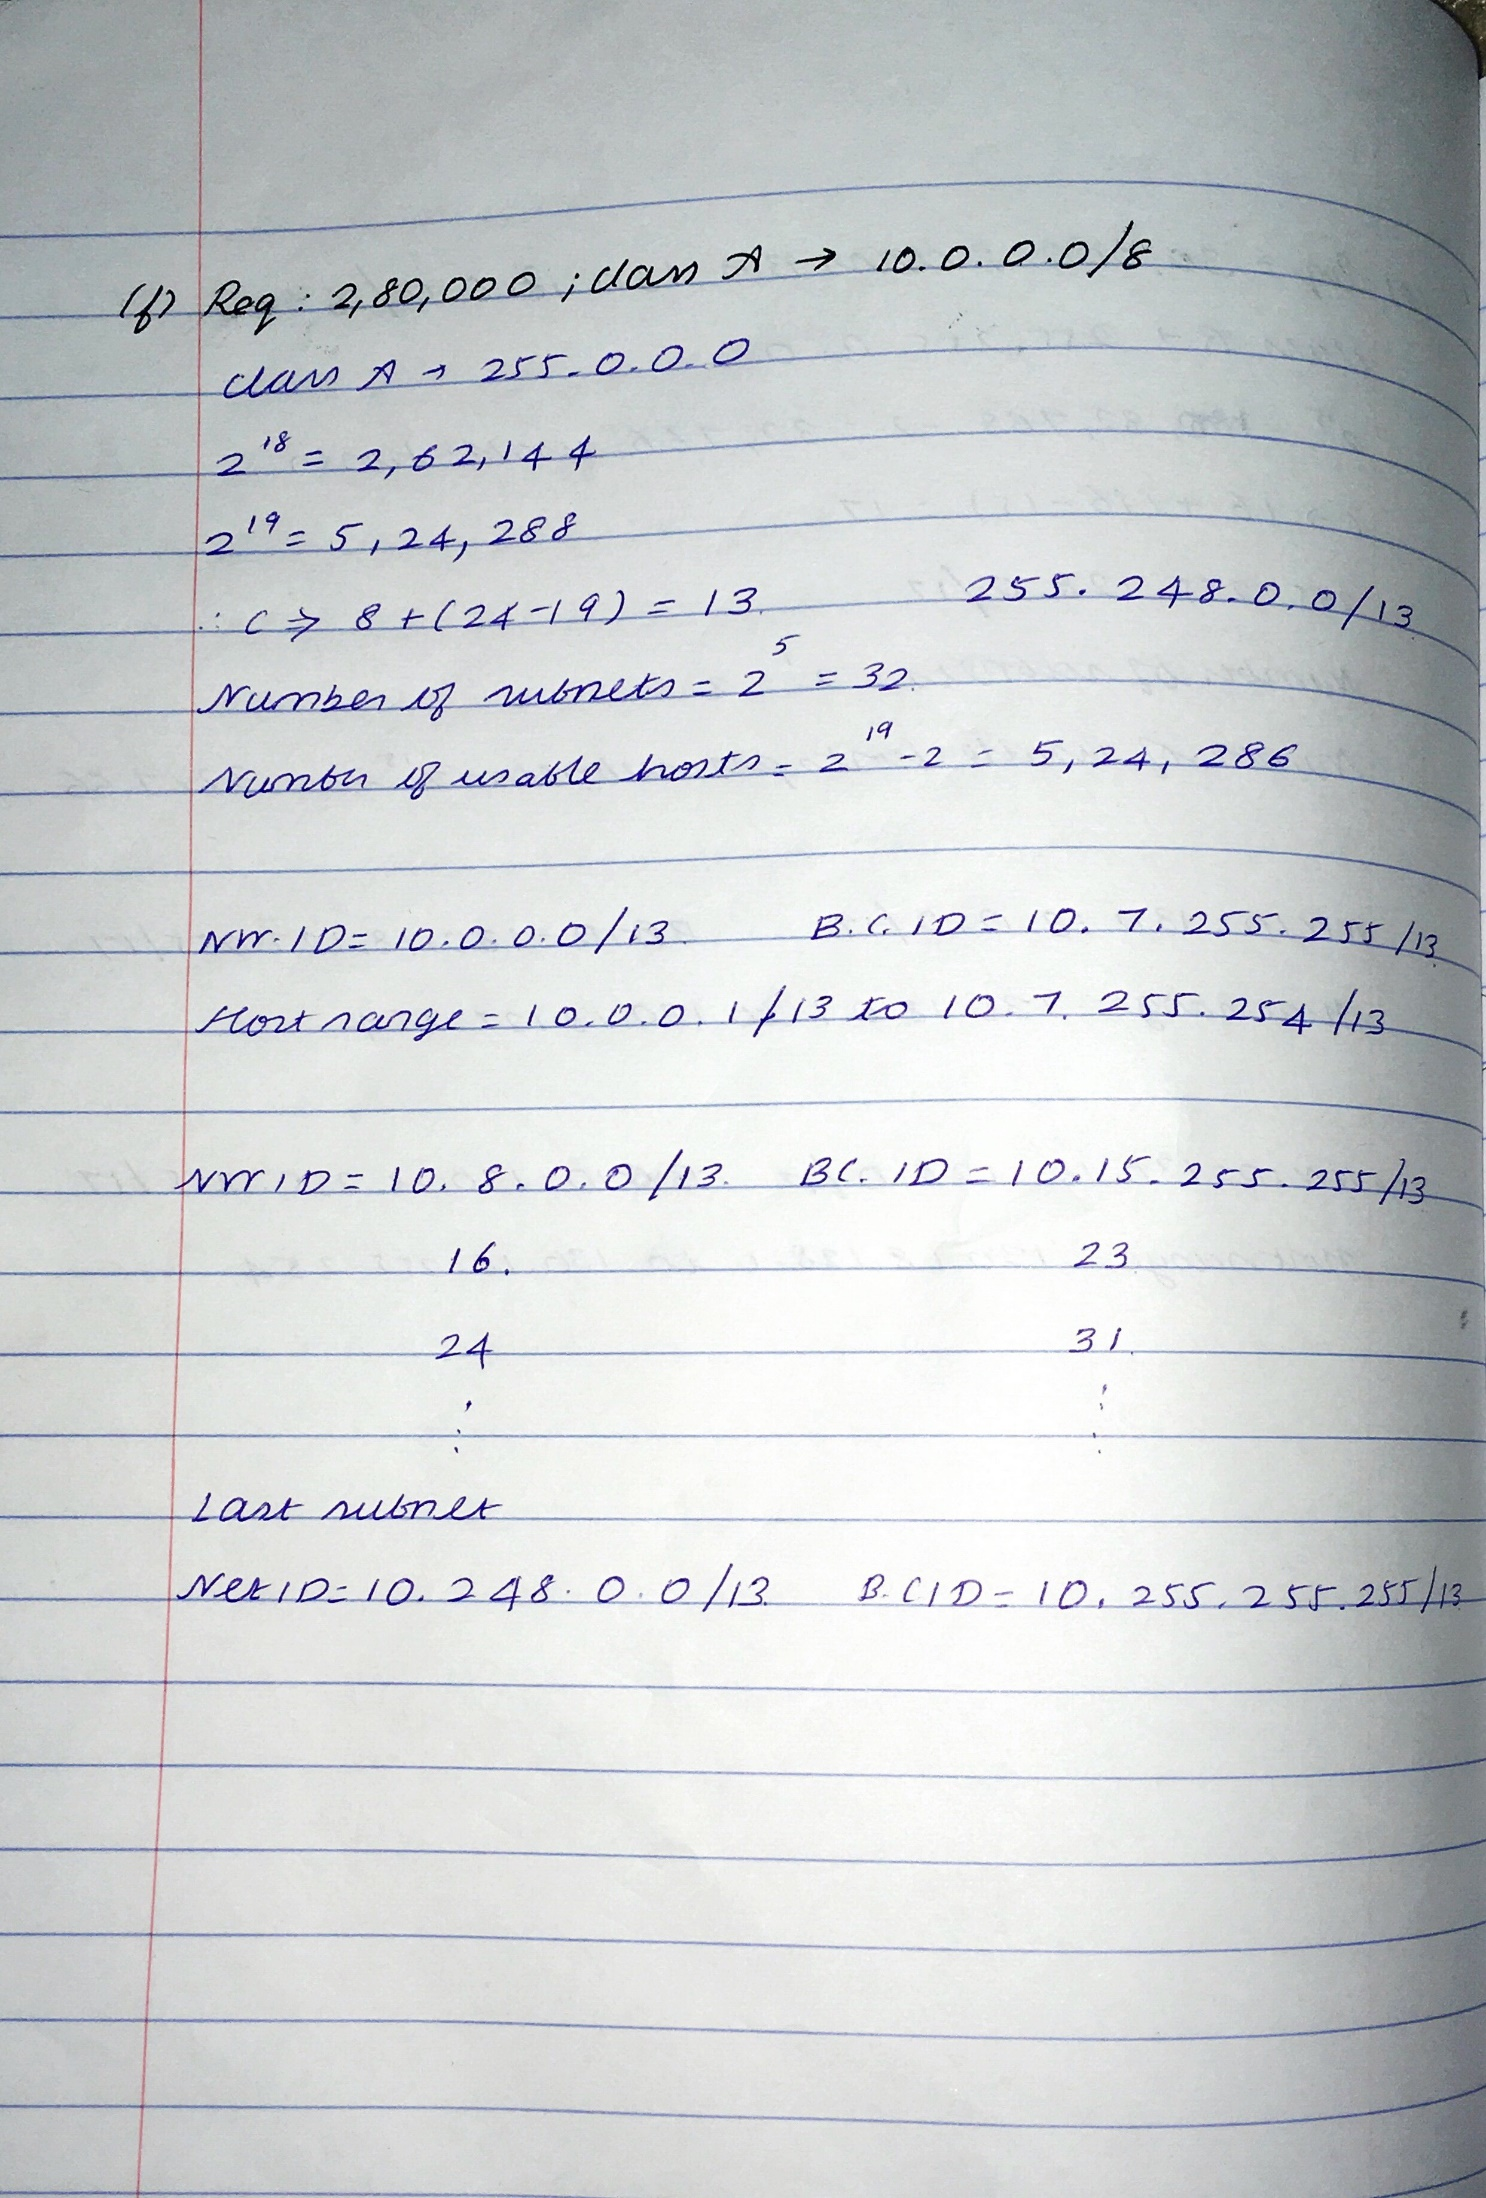 (f) Req : 2,80,000 ; class A → 10.0.0.0/8
class A → 255.0.0.0
2^18 = 2,62,144
2^19 = 5,24,288
∴ C ⇒ 8 + (24-19) = 13. 255.248.0.0/13
Number of subnets = 2^5 = 32.
Number of usable hosts = 2^19 - 2 = 5,24,286
NW.ID = 10.0.0.0/13. B.C.ID = 10.7.255.255/13
Host range = 10.0.0.1/13 to 10.7.255.254/13
NW ID = 10.8.0.0/13. BC.ID = 10.15.255.255/13
16. 23.
24 31.
⋮ ⋮
Last subnet
Net ID = 10.248.0.0/13. B.C ID = 10.255.255.255/13